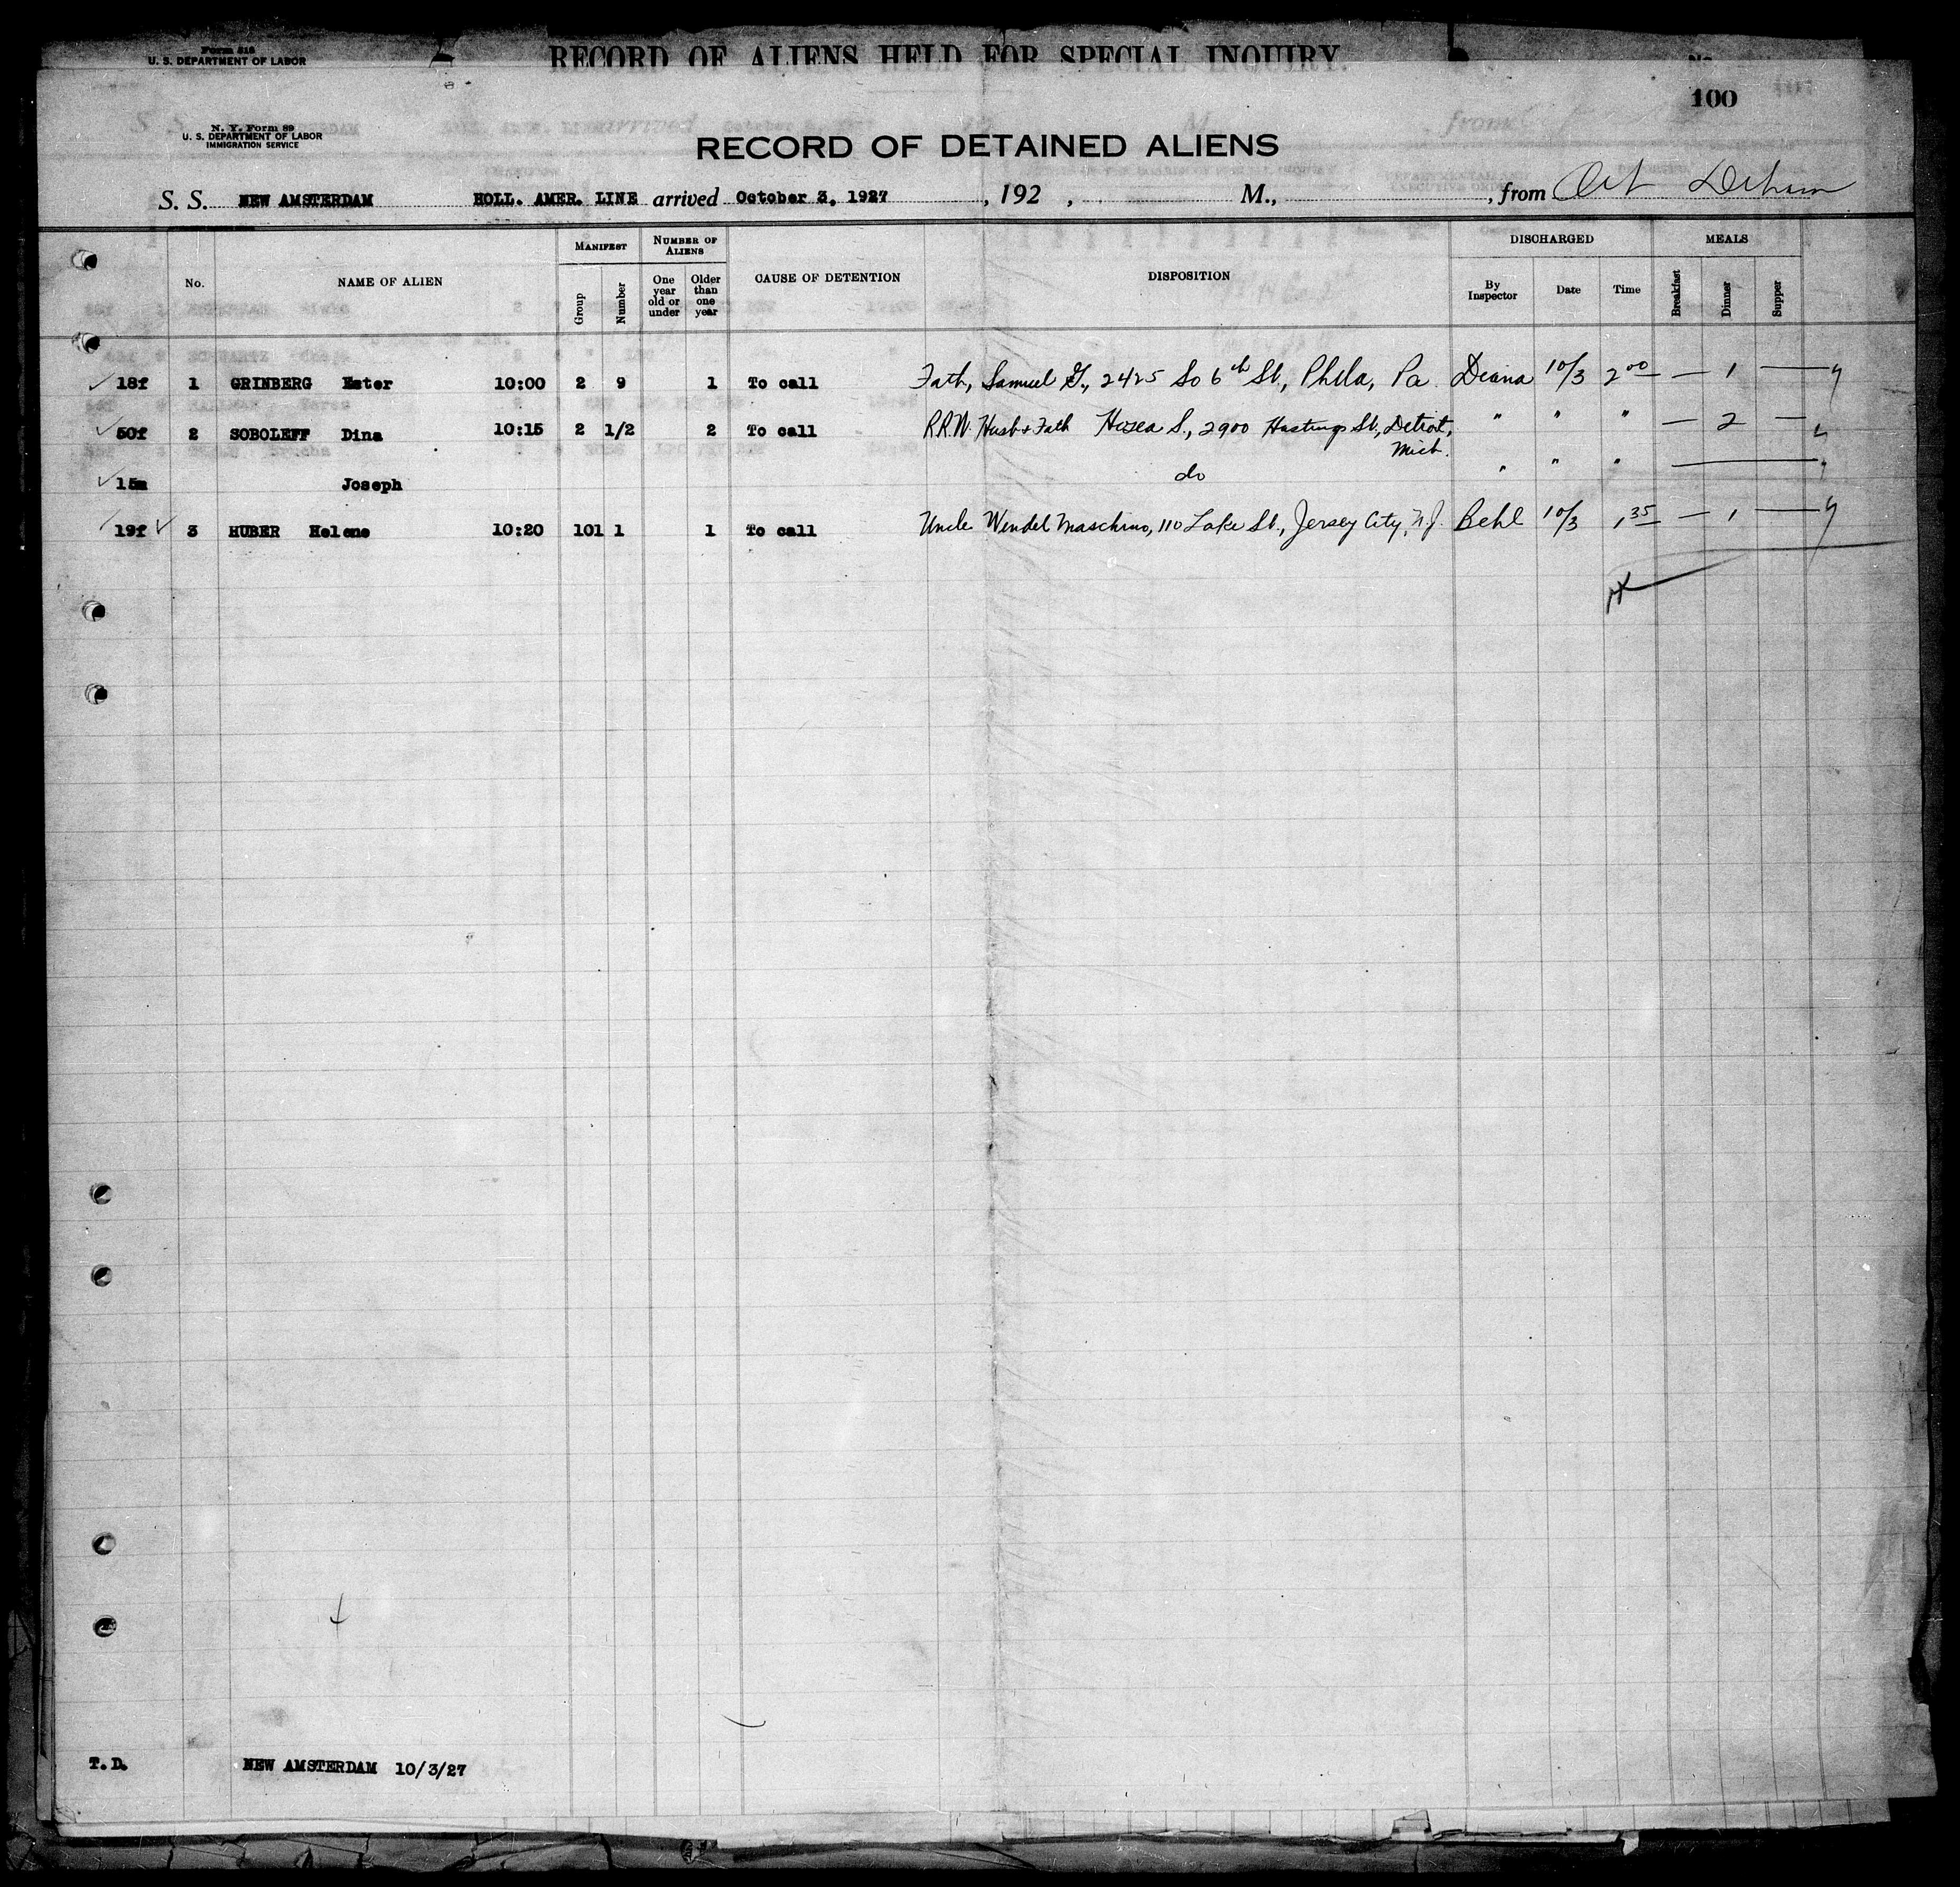 Form 518
U. S. DEPARTMENT OF LABOR
RECORD OF ALIENS HELD FOR SPECIAL INQUIRY.
No.
100
N. Y. Form 89
U. S. DEPARTMENT OF LABOR
IMMIGRATION SERVICE
RECORD OF DETAINED ALIENS
S. S. NEW AMSTERDAM HOLL. AMER. LINE arrived October 3, 1927 , 192 , M., , from
No. NAME OF ALIEN MANIFEST Group Number NUMBER OF ALIENS One year old or under Older than one year CAUSE OF DETENTION DISPOSITION DISCHARGED By Inspector Date Time MEALS Breakfast Dinner Supper
18f 1 GRINBERG Ester 10:00 2 9 1 To call Fath, Samuel G., 2425 So 6th St., Phila, Pa. Deana 10/3 2 00 — 1 —
50f 2 SOBOLEFF Dina 10:15 2 1/2 2 To call R.R.W. Husb + Fath Hosea S., 2900 Hastings St., Detroit, Mich. " " " — 2 —
15m Joseph do " " " —
19f 3 HUBER Helene 10:20 101 1 1 To call Uncle Wendel Maschino, 110 Lake St., Jersey City, N.J. Behl 10/3 1 35 — 1 —
T. D. NEW AMSTERDAM 10/3/27